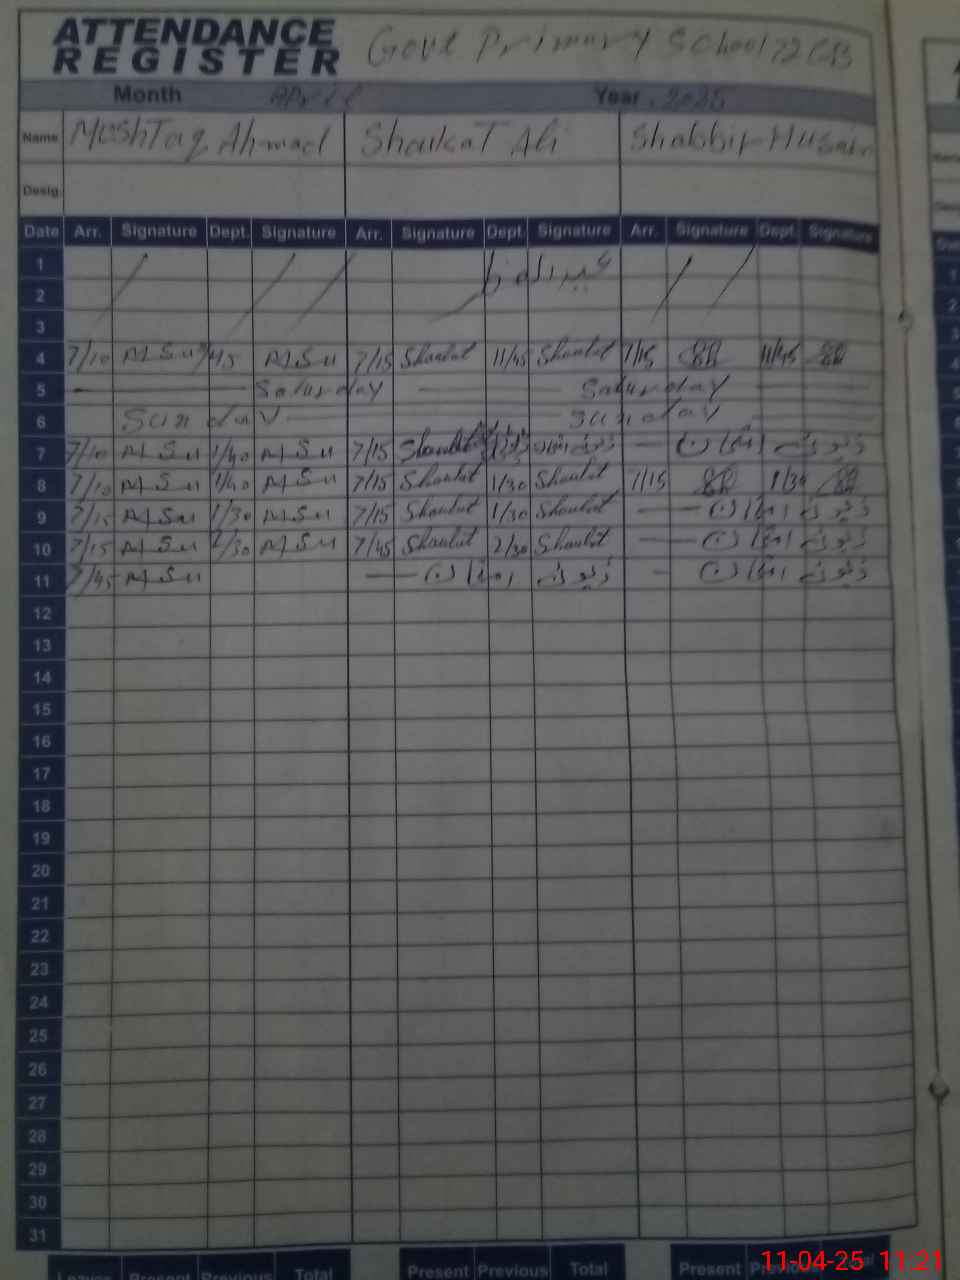 ATTENDANCE REGISTER Govt Primary School 72 GB
Month April Year 2025
Name MushTaq Ahmad Shaukat Ali Shabbir Husain
Desig
Date Arr. Signature Dept. Signature Arr. Signature Dept. Signature Arr. Signature Dept. Signature
1 عید الفطر
2
3
4 7/10 M.Su 45 M.Su 7/15 Shaukat 11/45 Shaukat 7/15 11/45
5 Saturday Saturday
6 Sunday Sunday
7 7/10 M.Su 1/40 M.Su 7/15 Shaukat ڈیوٹی امتحان ڈیوٹی امتحان
8 7/10 M.Su 1/40 M.Su 7/15 Shaukat 1/30 Shaukat 7/15 1/30
9 7/15 M.Su 1/30 M.Su 7/15 Shaukat 1/30 Shaukat ڈیوٹی امتحان
10 7/15 M.Su 2/30 M.Su 7/45 Shaukat 2/30 Shaukat ڈیوٹی امتحان
11 7/45 M.Su ڈیوٹی امتحان ڈیوٹی امتحان
12
13
14
15
16
17
18
19
20
21
22
23
24
25
26
27
28
29
30
31
Leaves Present Previous Total Present Previous Total Present Previous Total
11-04-25 11:21